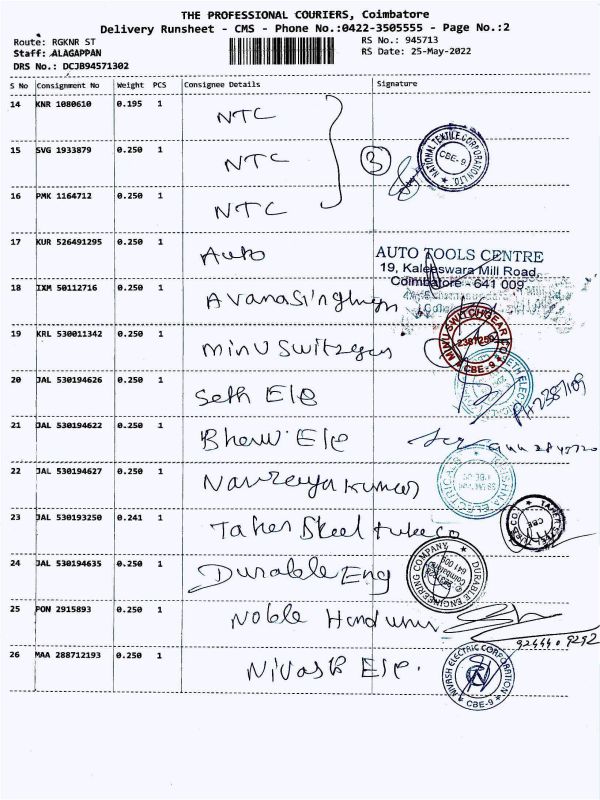 THE PROFESSIONAL COURIERS, Coimbatore
Delivery Runsheet - CMS - Phone No.:0422-3505555 - Page No.:2
Route: RGKNR ST RS No.: 945713
Staff: ALAGAPPAN RS Date: 25-May-2022
DRS No.: DCJB94571302
S No Consignment No Weight PCS Consignee Details Signature
14 KNR 1080610 0.195 1 NTC
15 SVG 1933879 0.250 1 NTC 3 NATIONAL TEXTILE CORPORATION LTD. CBE-9
16 PMK 1164712 0.250 1 NTC
17 KUR 526491295 0.250 1 Auto
AUTO TOOLS CENTRE
19, Kaleeswara Mill Road,
Coimbatore - 641 009
18 IXM 50112716 0.250 1
19 KRL 530011342 0.250 1 Minu MINU SWITCHGEAR CO CBE-9
20 JAL 530194626 0.250 1 Seth Ele
21 JAL 530194622 0.250 1 Ele
22 JAL 530194627 0.250 1
23 JAL 530193250 0.241 1 Taher Steel tube co
24 JAL 530194635 0.250 1 Durable Eng DURABLE ENGINEERING COMPANY Coimbatore 641 009
25 PON 2915893 0.250 1 Noble
26 MAA 288712193 0.250 1 Nivash Ele. NIVASH ELECTRIC CORPORATION CBE-9